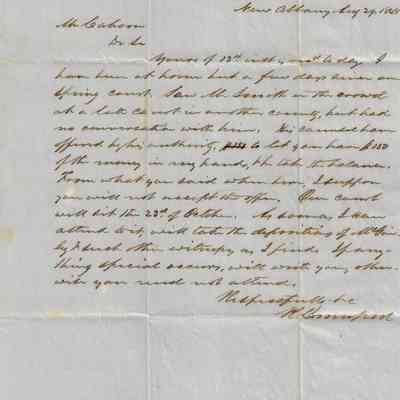 New Albany Aug 29, 18
Mr Cahoon
Dr Sir
Yours of 12th inst is rec'd to day I
have been at home but a few days since our
Spring court. Saw Mr. Smith in the crowd
at a late court in another county, but had
no conversation with him. His counsel have
offered by his authority, to let you have $150
of the money in my hands, & he take the balance.
From what you said when here, I suppose
you will not accept the offer. Our court
will sit the 23d of October. As soon as I can
attend to it, will take the depositions of Mc
& such other witnesses as I find. If any-
thing special occurs, will write you, other-
wise you need not attend.
Respectfully &c